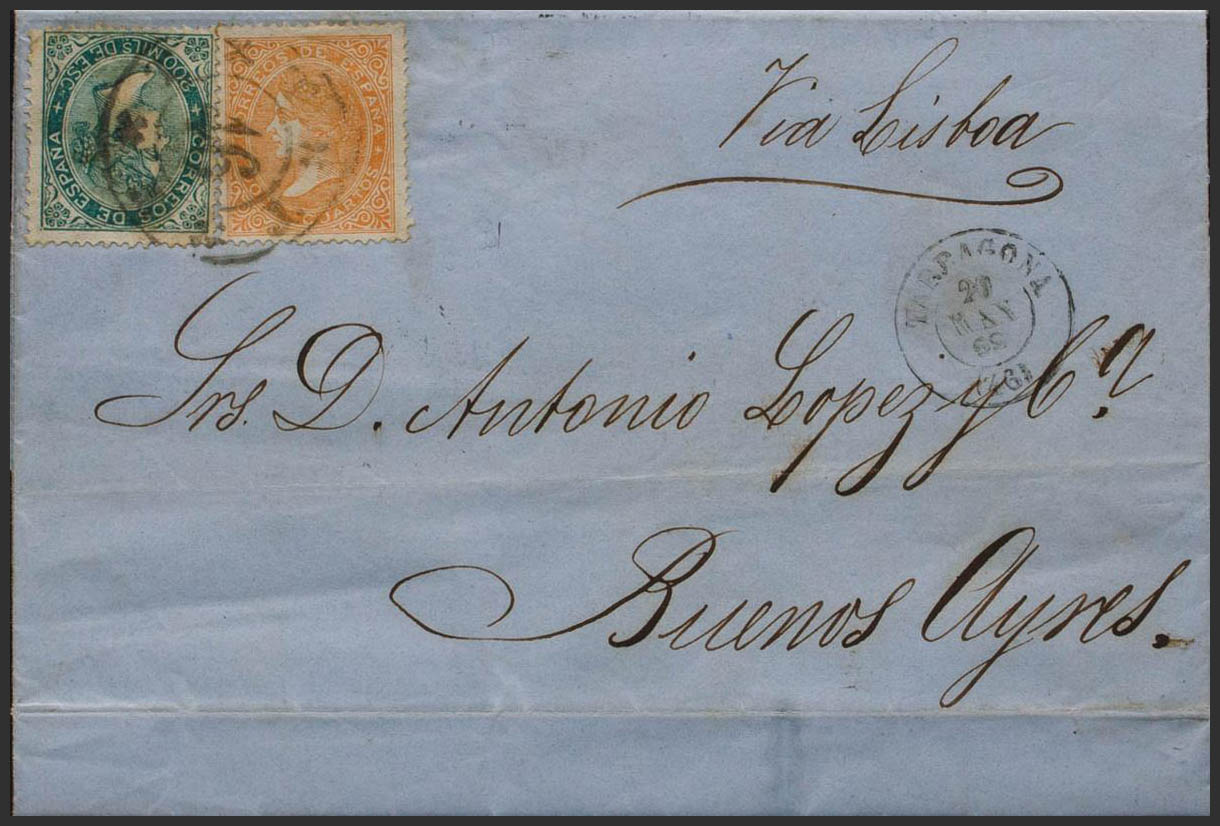 200 MILS DE ESC.
CORREOS DE ESPAÑA
CORREOS DE ESPAÑA
CUARTOS
Via Lisboa
TARRAGONA
MAY
69
Srs. D. Antonio Lopez y Cª.
Buenos Ayres.